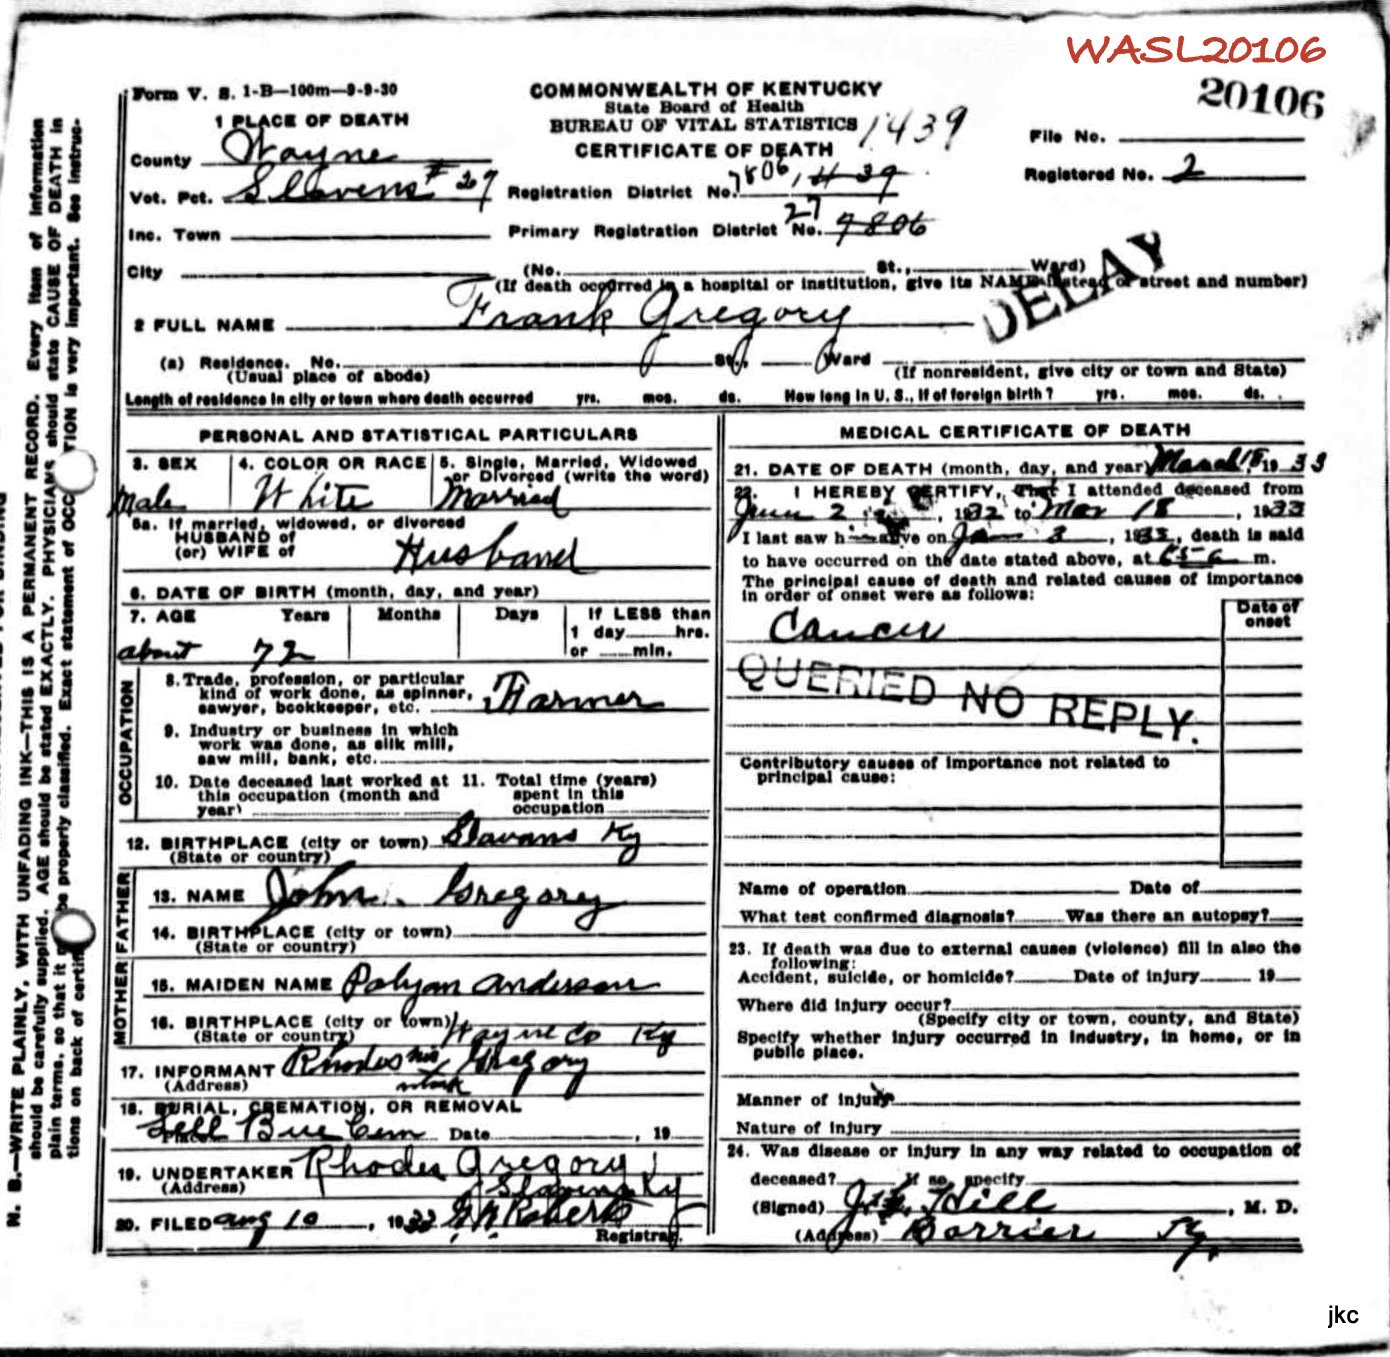 WASL20106
20106
Form V. S. 1-B—100m—9-9-30
COMMONWEALTH OF KENTUCKY
State Board of Health
BUREAU OF VITAL STATISTICS
1439
CERTIFICATE OF DEATH
File No.
Registered No. 2
1 PLACE OF DEATH
County Wayne
Vot. Pct. Slavens #27
Registration District No. 7806, 1439
Inc. Town
Primary Registration District No. 27 7806
City (No. St., Ward)
(If death occurred in a hospital or institution, give its NAME instead of street and number)
DELAY
2 FULL NAME Frank Gregory
(a) Residence. No. St., Ward
(Usual place of abode) (If nonresident, give city or town and State)
Length of residence in city or town where death occurred yrs. mos. ds. How long in U. S., if of foreign birth? yrs. mos. ds.
PERSONAL AND STATISTICAL PARTICULARS
3. SEX 4. COLOR OR RACE 5. Single, Married, Widowed
or Divorced (write the word)
Male White Married
5a. If married, widowed, or divorced
HUSBAND of
(or) WIFE of Husband
6. DATE OF BIRTH (month, day, and year)
7. AGE Years Months Days If LESS than
1 day hrs.
or min.
about 72
OCCUPATION
8. Trade, profession, or particular
kind of work done, as spinner,
sawyer, bookkeeper, etc. Farmer
9. Industry or business in which
work was done, as silk mill,
saw mill, bank, etc.
10. Date deceased last worked at
this occupation (month and
year)
11. Total time (years)
spent in this
occupation
12. BIRTHPLACE (city or town) Slavans Ky
(State or country)
FATHER
13. NAME John Gregory
14. BIRTHPLACE (city or town)
(State or country)
MOTHER
15. MAIDEN NAME Polyan Anderson
16. BIRTHPLACE (city or town) Wayne Co Ky
(State or country)
17. INFORMANT Rhodes his Gregory
(Address) mark
18. BURIAL, CREMATION, OR REMOVAL
Place Cem Date , 19
19. UNDERTAKER Rhodes Gregory
(Address) Slavens Ky
20. FILED Aug 10, 1933 Roberts
Registrar.
MEDICAL CERTIFICATE OF DEATH
21. DATE OF DEATH (month, day, and year) March 18 1933
22. I HEREBY CERTIFY, That I attended deceased from
2, 1932 to Mar 18, 1933
I last saw h alive on 3, 1933, death is said
to have occurred on the date stated above, at m.
The principal cause of death and related causes of importance
in order of onset were as follows:
Date of
onset
Cancer
QUERIED NO REPLY.
Contributory causes of importance not related to
principal cause:
Name of operation Date of
What test confirmed diagnosis? Was there an autopsy?
23. If death was due to external causes (violence) fill in also the
following:
Accident, suicide, or homicide? Date of injury 19
Where did injury occur?
(Specify city or town, county, and State)
Specify whether injury occurred in industry, in home, or in
public place.
Manner of injury
Nature of injury
24. Was disease or injury in any way related to occupation of
deceased? If so, specify
(Signed) Hill, M. D.
(Address) Barrier Ky.
N. B.—WRITE PLAINLY, WITH UNFADING INK—THIS IS A PERMANENT RECORD. Every item of information
should be carefully supplied. AGE should be stated EXACTLY. PHYSICIANS should state CAUSE OF DEATH in
plain terms, so that it be properly classified. Exact statement of OCC TION is very important. See instruc-
tions on back of certifi
jkc